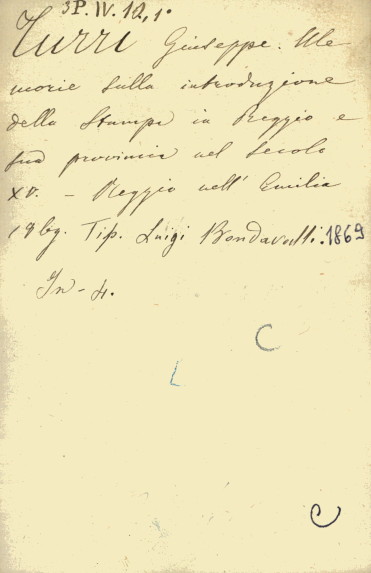 3P. IV. 1Q, 1°
Turri Giuseppe. Me-
morie sulla introduzione
della Stampa in Reggio e
sua provincia nel Secolo
XV. – Reggio nell' Emilia
Tip. Luigi Bondavalli. 1869
In-4.
C
L
C